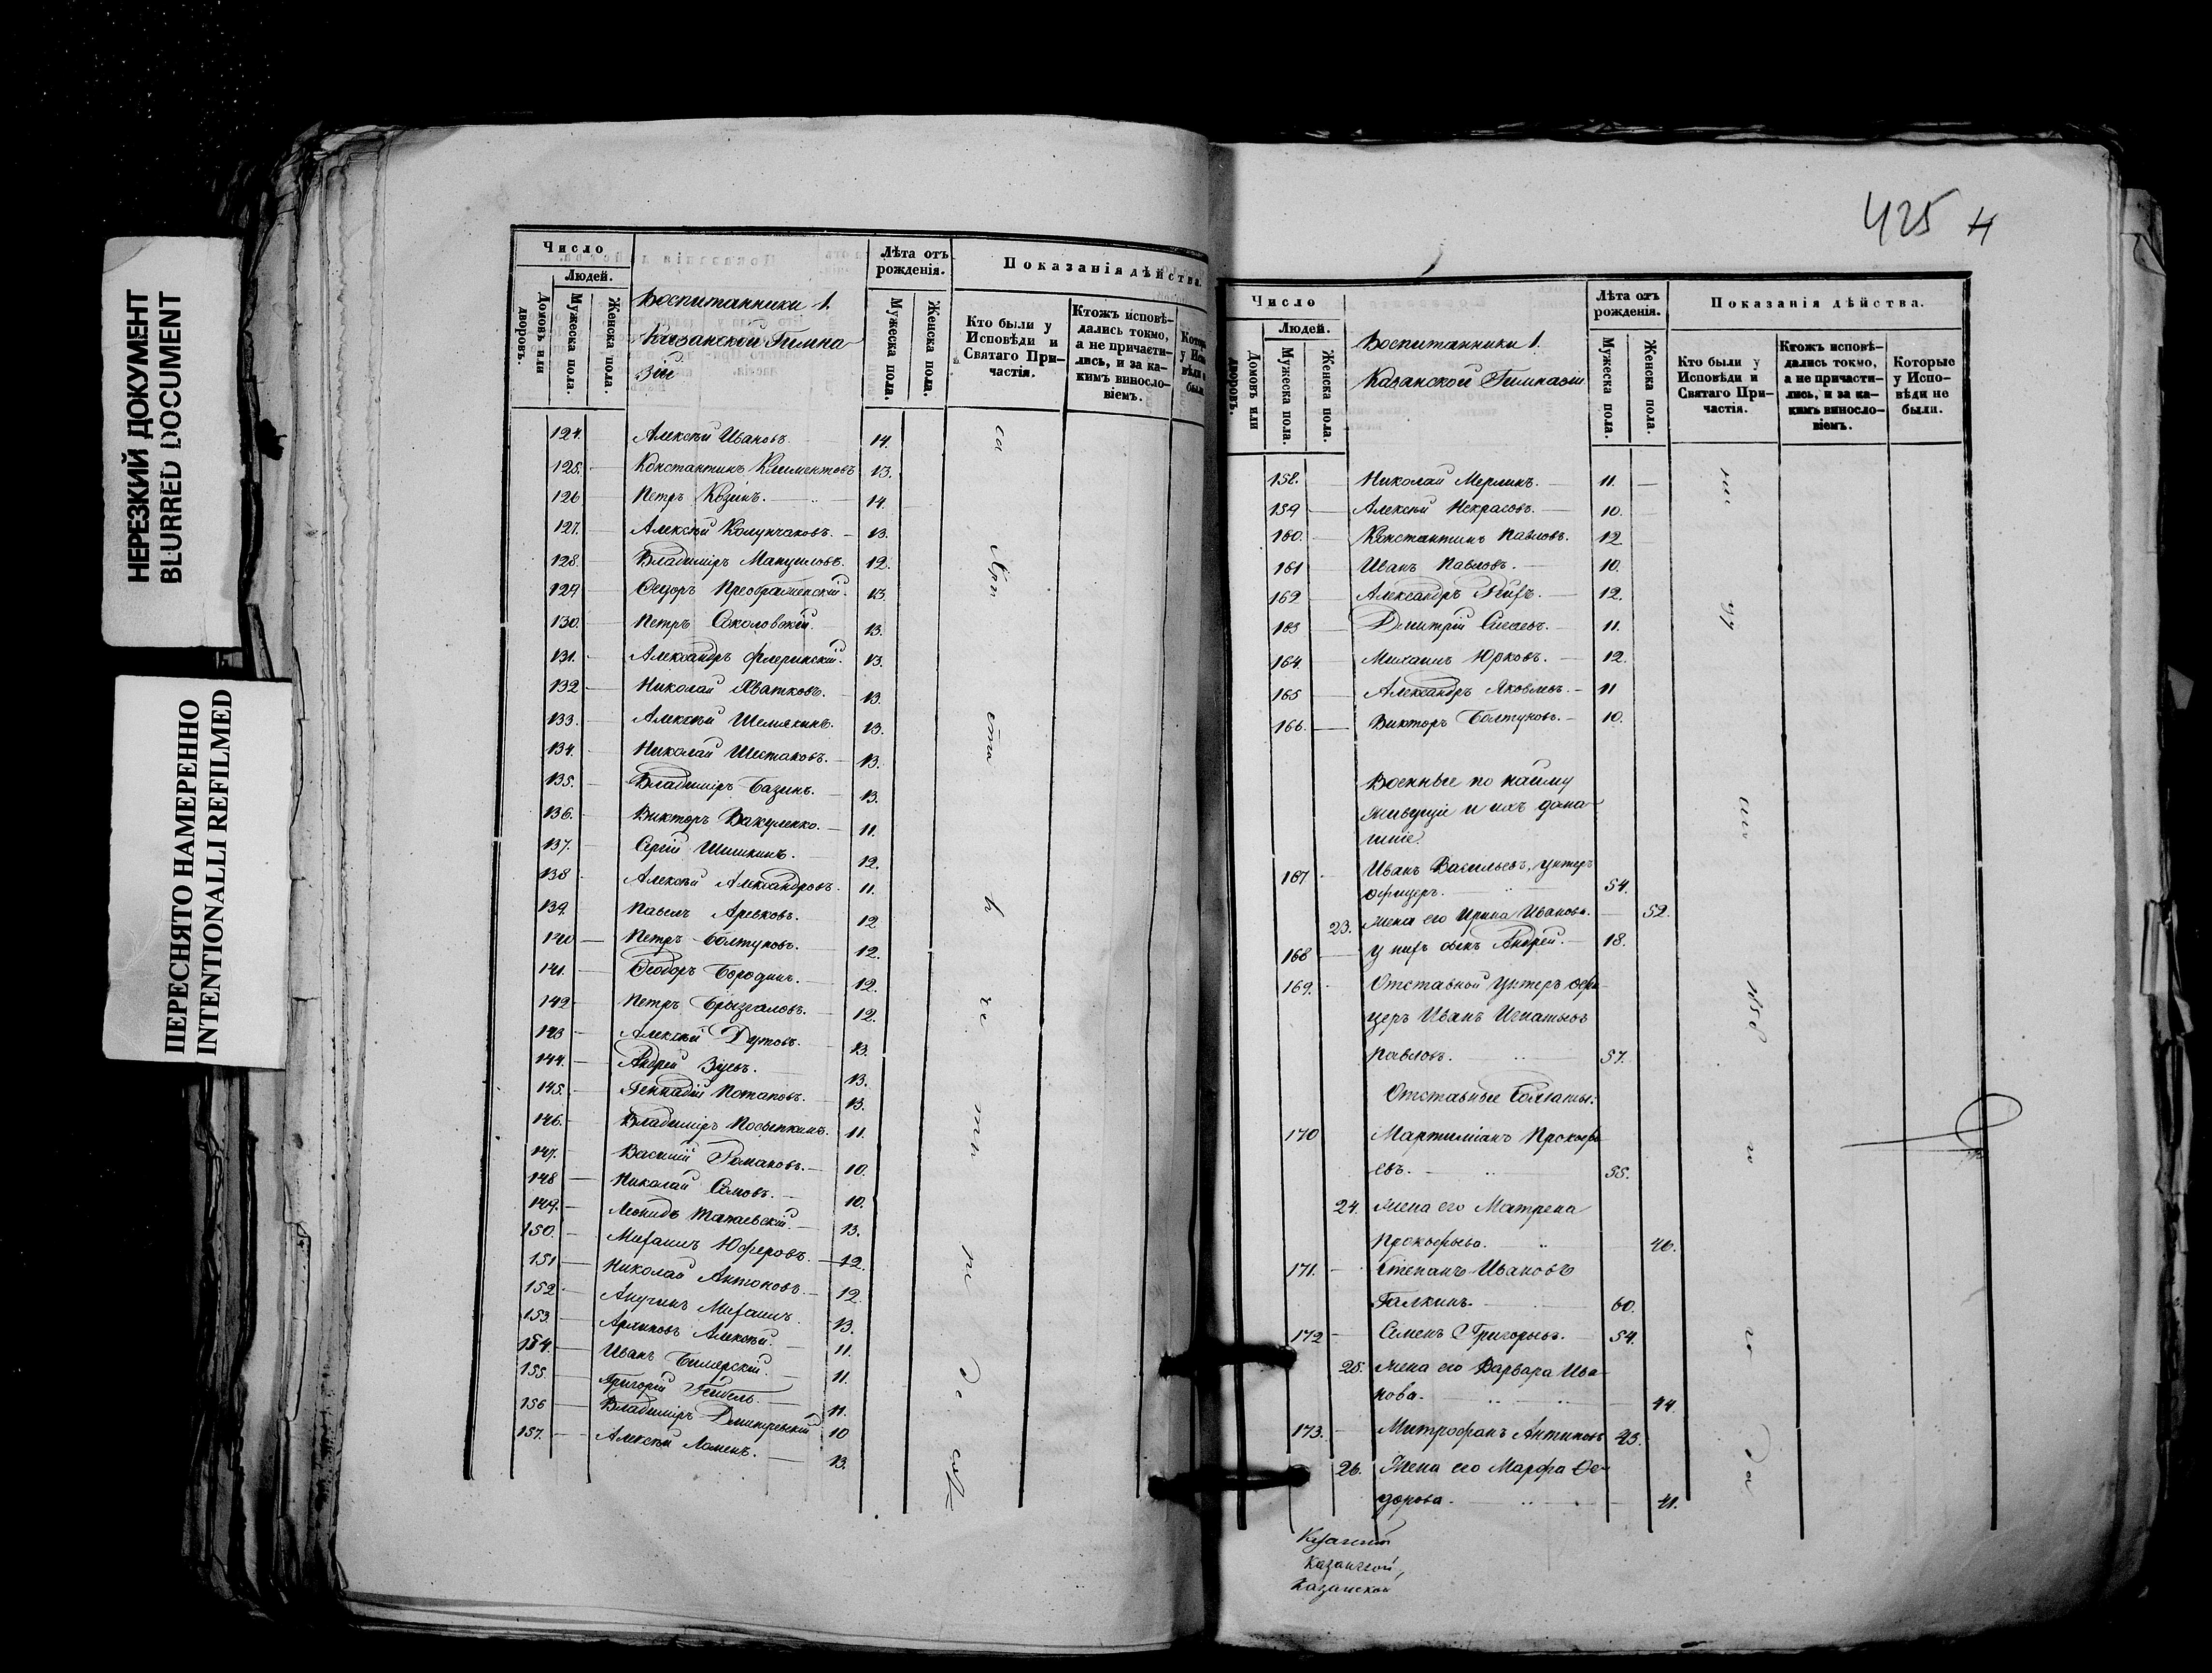 НЕРЕЗКИЙ ДОКУМЕНТ
BLURRED DOCUMENT
ПЕРЕСНЯТО НАМЕРЕННО
INTENTIONALLI REFILMED
Число
Людей.
Домовъ или дворовъ.
Мужеска пола.
Женска пола.
Воспитанники 1.
Казанской Гимна
зіи
Лѣта отъ рожденія.
Мужеска пола.
Женска пола.
Показанія дѣйства.
Кто были у
Исповѣди и
Святаго При-
частія.
Ктожъ исповѣ-
дались токмо,
а не причасти-
лись, и за ка-
кимъ винослo-
віемъ.
124. Алексѣй Ивановъ. 14.
125. Константинъ Климентовъ 13.
126 Петръ Козинъ. 14.
127. Алексѣй Колунчаковъ. 13.
128. Владиміръ Мануиловъ. 12.
129 Ѳедоръ Преображенскій. 13.
130. Петръ Соколовскій. 13.
131. Александръ Флеринскій. 13.
132 Николай Хватковъ. 13.
133. Алексѣй Шелякинъ. 13.
134. Николай Шестаковъ. 13.
135. Владиміръ Базинъ. 13.
136. Викторъ Вакуленко. 11.
137. Сергій Шишкинъ. 12.
138 Алексѣй Александровъ. 11.
139. Павелъ 12
140 Петръ Болтуновъ. 12.
141. Ѳеодоръ Бородинъ. 12.
142 Петръ Брызгаловъ. 12.
143 Алексѣй Дутовъ. 13.
144. Андрей Зуевъ. 13.
145. Геннадій Потаповъ. 13.
146. Владиміръ Посыпкинъ. 11.
147. Василій Романовъ. 10.
148 Николай 10.
149. Леонидъ 13.
150. Михаилъ Юферовъ. 12.
151 Николай Антоновъ. 12
152. Анучинъ Михаилъ. 13.
153. Алексѣй. 11.
154. Иванъ 11.
155. Григорій Гейдель. 11.
156 Владиміръ Дмитревскій 10
157. Алексѣй Ломенъ. 13.
425
Число
Людей.
Домовъ или дворовъ.
Мужеска пола.
Женска пола.
Воспитанники 1.
Казанской Гимназіи
Лѣта отъ рожденія.
Мужеска пола.
Женска пола.
Показанія дѣйства.
Кто были у
Исповѣди и
Святаго При-
частія.
Ктожъ исповѣ-
дались токмо,
а не причасти-
лись, и за ка-
кимъ винослo-
віемъ.
Которые
у Испо-
вѣди не
были.
158. Николай Мерлинъ. 11.
159 Алексѣй Некрасовъ. 10.
160. Константинъ Павловъ. 12
161 Иванъ Павловъ. 10.
162 Александръ 12.
163 Дмитрій 11.
164. Михаилъ Юрковъ. 12.
165 Александръ Яковлевъ. 11
166. Викторъ Болтуновъ. 10.
Военные по найму
живущіе и ихъ дома-
шніе.
167 Иванъ Васильевъ, унтеръ
офицеръ. 54.
23. жена его Ирина Иванова. 52.
168 у нихъ сынъ Андрей. 18.
169. Отставной Унтеръ офи
церъ Иванъ Игнатьевъ
Павловъ. 57.
Отставные Солдаты:
170 Мартиніанъ Прокофь
евъ. 55.
24. жена его Матрена
Прокофьева. 46.
171. Степанъ Ивановъ
Галкинъ. 60.
172 Семенъ Григорьевъ. 54.
25. жена его Варвара Ива-
нова. 44.
173. Митрофанъ Антиповъ 43.
26. Жена его Марфа Ѳе-
дорова. 41.
Казанской,
Казанской